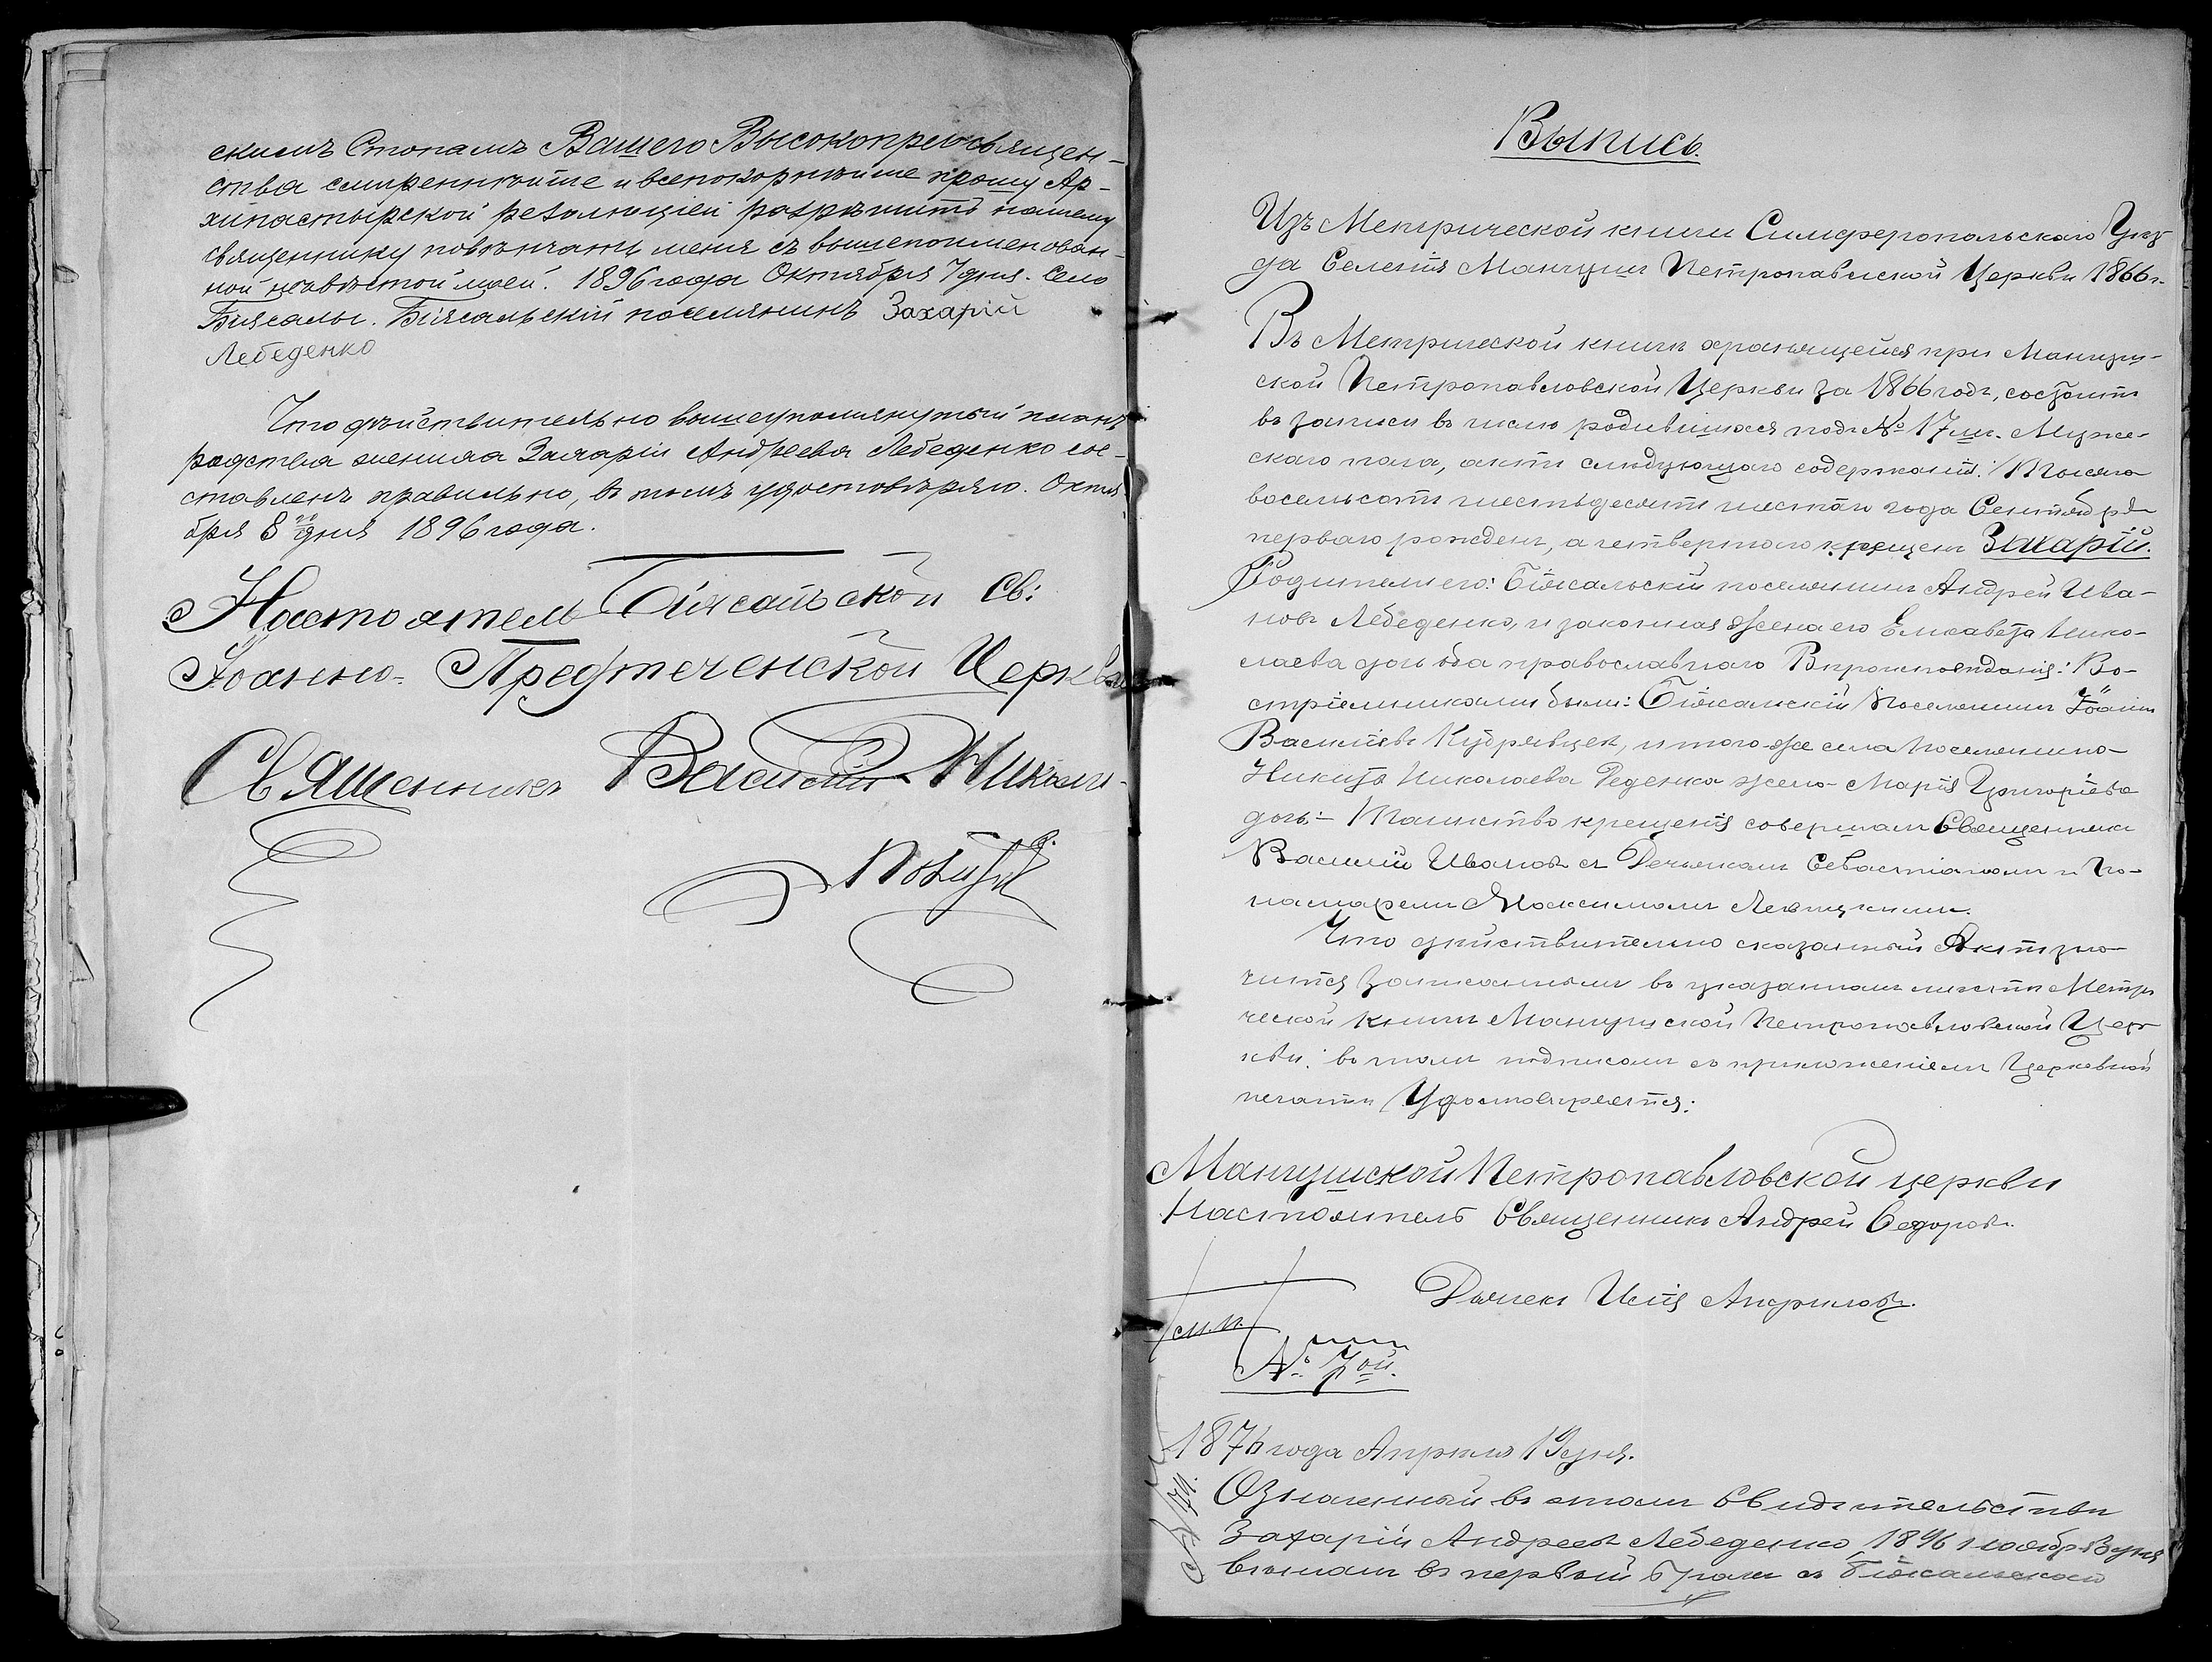 скимъ Стопамъ Вашего Высокопреосвящен-
ства смиреннѣйше и всепокорнѣйше прошу Ар-
хипастырской резолюціей разрѣшить нашему
священнику повѣнчать меня съ вышепоименован-
ной невѣстой моей. 1896 года Октября 7 дня. Село
Біясалы. Біясальскій поселянинъ Захарій
Лебеденко
Что дѣйствительно вышеупомянутый планъ
родства жениха Захарія Андреева Лебеденко сос-
тавленъ правильно, въ томъ удостовѣряю. Октя-
бря 8 го дня 1896 года.
Настоятель Біясальской Св:
Іоанно-Предтеченской Церкви
Священникъ Василій
Выпись.
Изъ Метрической книги Симферопольскаго Уѣз-
да Селенія Мангушъ Петропавлской Церкви 1866 г.
Въ Метрической книгѣ хранящейся при Мангуш-
ской Петропавловской Церкви за 1866 годъ, состоитъ
въ записи въ число родившихся подъ № 17 м. Муже-
скаго пола, актъ слѣдующаго содержанія: Тысяча
восемьсотъ шестьдесятъ шестаго года Сентября
перваго рожденъ, а четвертаго крещенъ Захарій.
Родители его: Біясальскій поселянинъ Андрей Ива-
новъ Лебеденко, и законная жена его Елисавета Нико-
лаева дочь оба православнаго Вѣроисповѣданія: Во-
спріемниками были: Біясальскій Поселянинъ Іоаннъ
Васильевъ Кудрявцев, и того же села поселянина
Никиты Николаева Деденка жена Марія Григорьева
дочь:- Таинство крещенія совершалъ Священникъ
Василій Ивановъ съ Дьячкомъ Севастіаномъ и По-
намаремъ Максимомъ Левицкимъ.
Что дѣйствительно сказанный Актъ зна-
чится записаннымъ въ указанномъ мѣстѣ Метри
ческой книги Мангушской Петропавловской Цер
кви. въ томъ подписомъ съ приложеніемъ Церковной
печати Удостовѣряется:
Мангушской Петропавловской церкви
Настоятель Священникъ Андрей Федоровъ.
Дьячекъ Илія
м.п.
№ 7 ой.
1876 года Апрѣля 19 дня.
Означенный въ этомъ Свидѣтельствѣ
Захарій Андреевъ Лебеденко 1896 ноября 3 дня
вѣнчанъ въ первый бракъ съ Біясальской